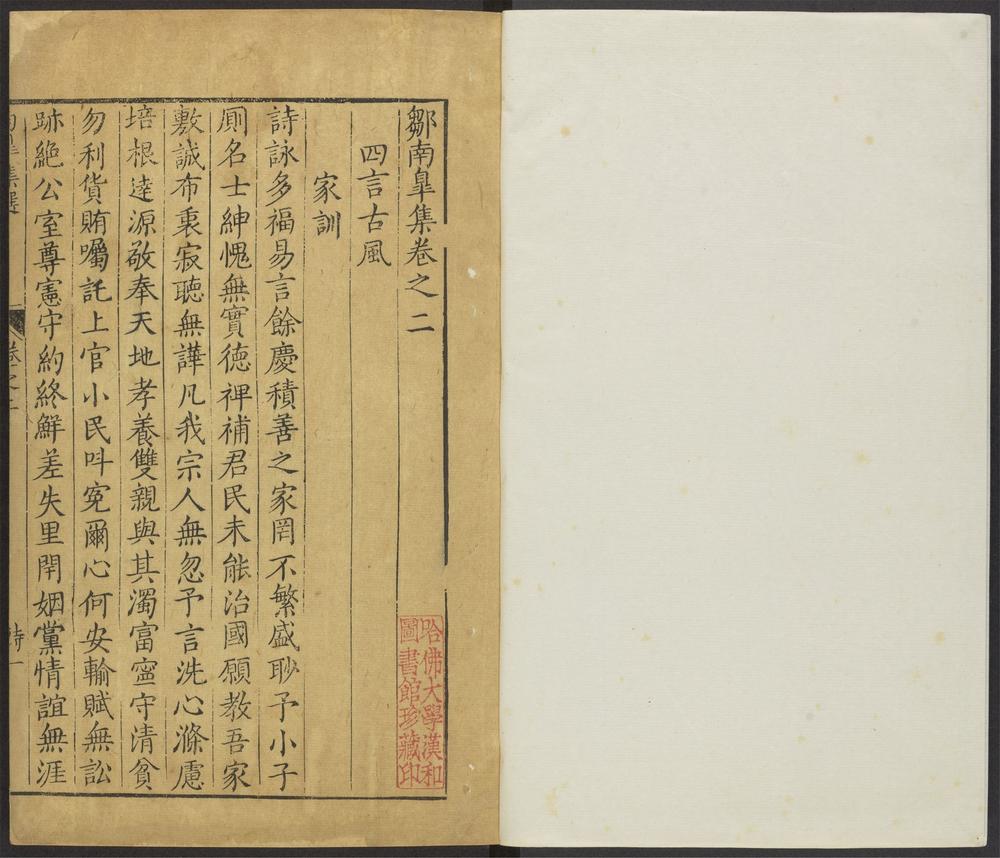 鄒南臯集卷之二
四言古風
家訓
詩詠多福易言餘慶積善之家罔不繁盛眇予小子
厠名士紳愧無實德裨補君民未能治國願教吾家
敷誠布裏寂聽無譁凡我宗人無忽予言洗心滌慮
培根達源敬奉天地孝養雙親與其濁富寧守清貧
勿利貨賄囑託上官小民呌寃爾心何安輸賦無訟
跡絶公室尊憲守約終鮮差失里閈姻黨情誼無涯
集選
卷之二
詩一
哈佛大學漢和
圖書館珍藏印